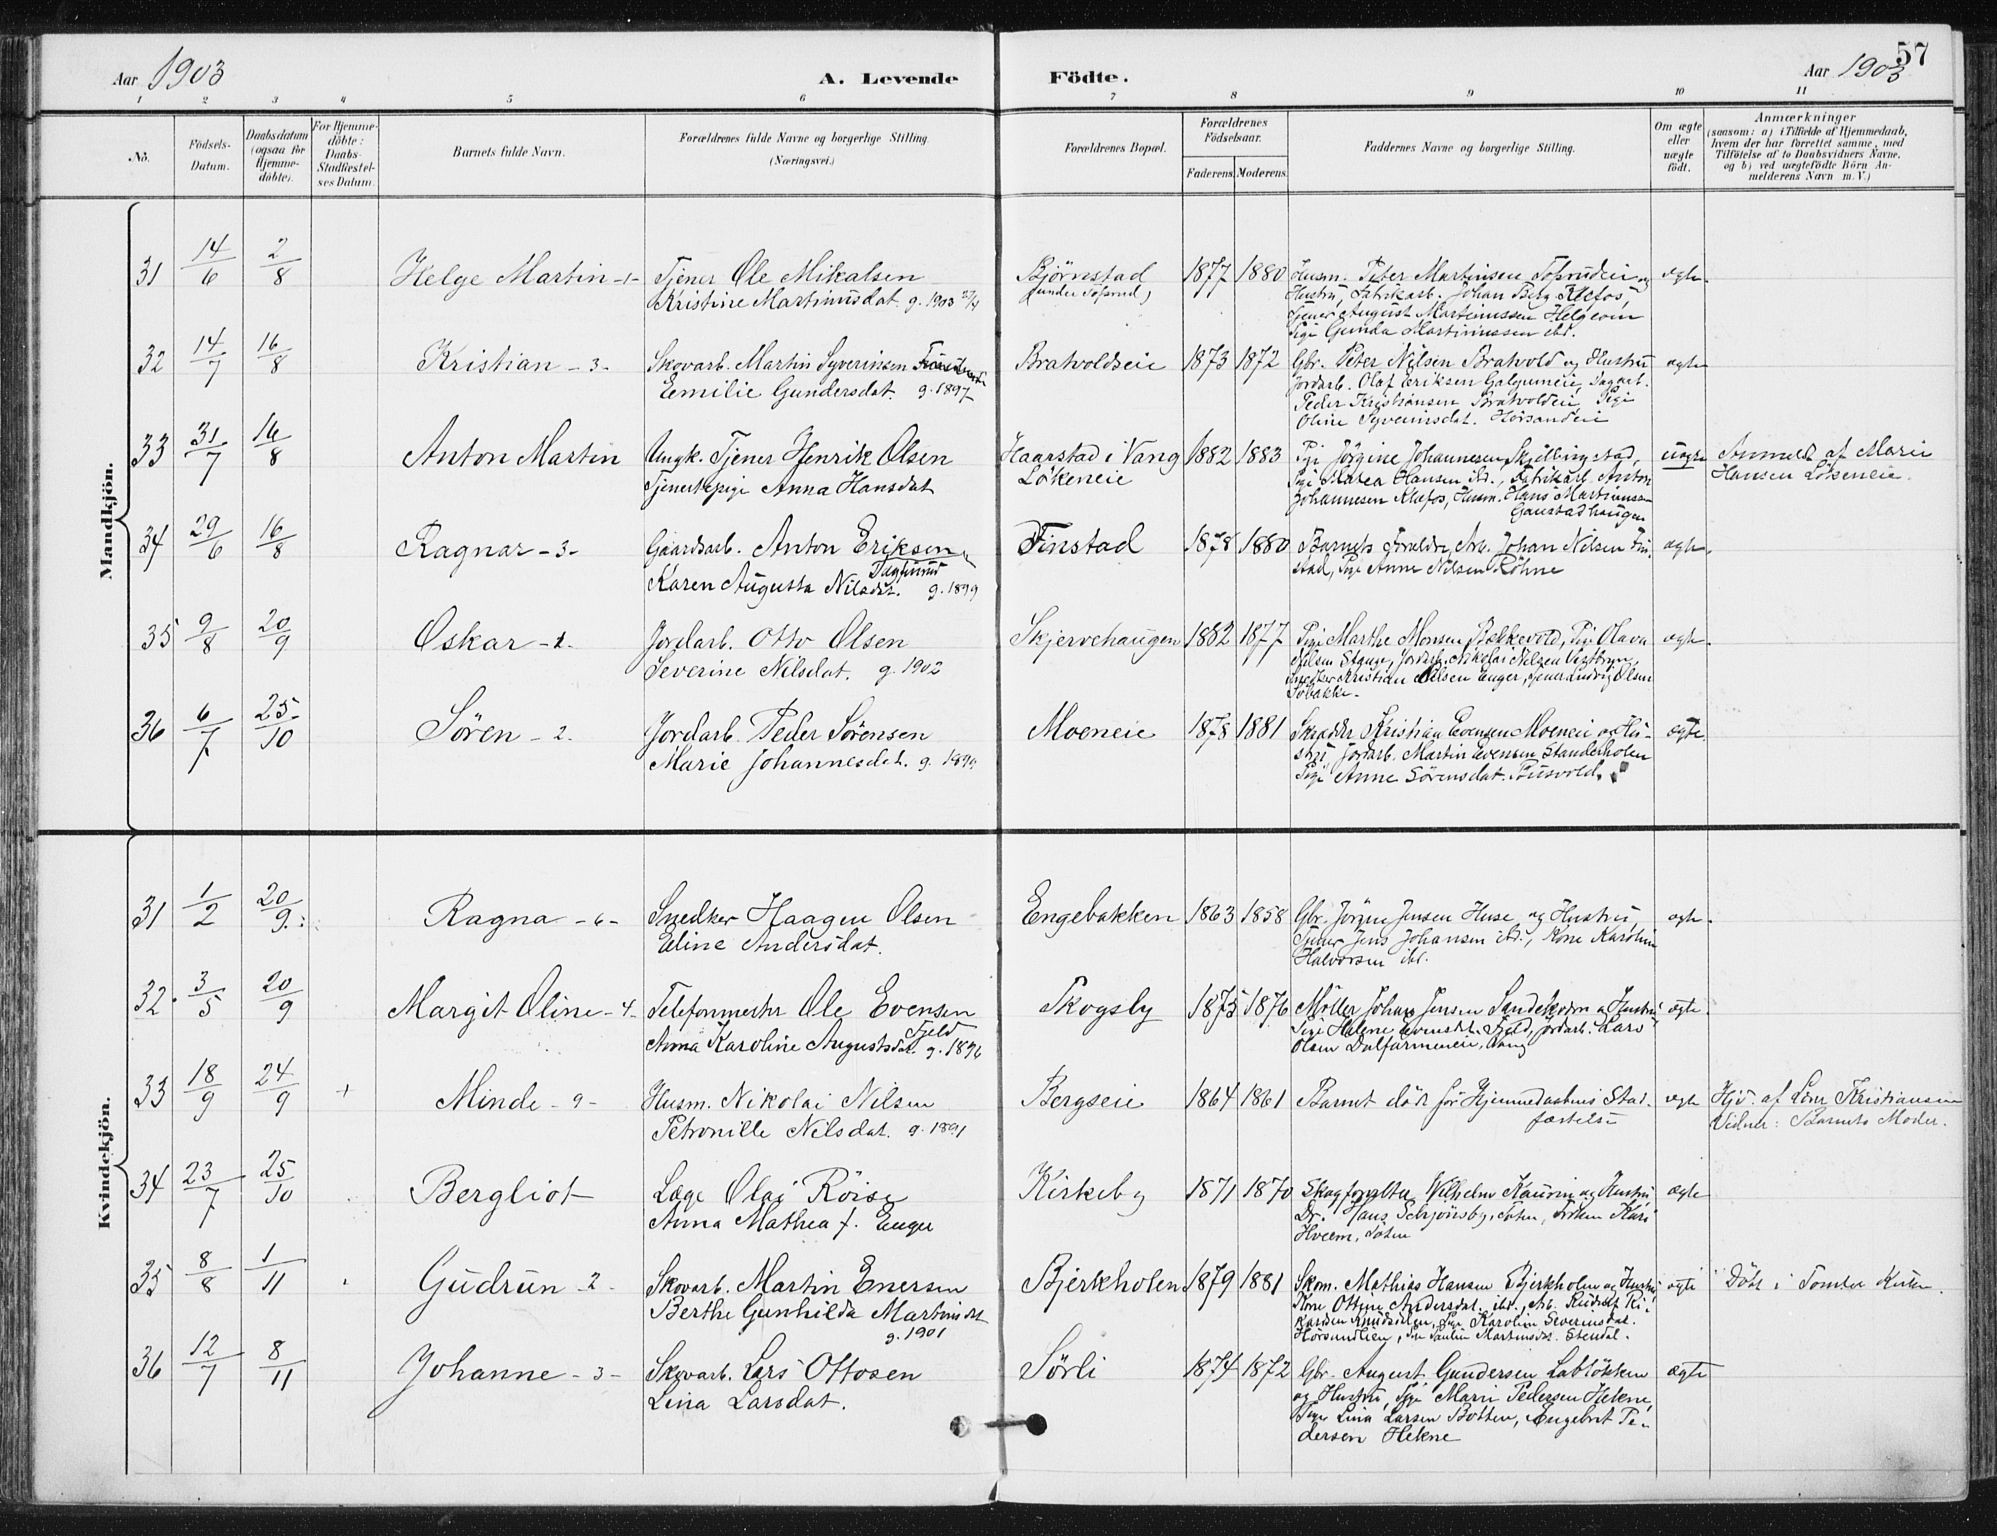 57
Aar 1903
A. Levende Födte.
Aar 1903
1 2 3 4 5 6 7 8 9 10 11
No.
Födsels-Datum.
Daabsdatum (ogsaa for Hjemme-döbte).
For Hjemme-döbte: Daabs-Stadfæstel-ses Datum.
Barnets fulde Navn.
Forældrenes fulde Navne og borgerlige Stilling.
(Næringsvei.)
Forældrenes Bopæl.
Forældrenes Födselsaar.
Faderens. Moderens.
Faddernes Navne og borgerlige Stilling.
Om ægte eller uægte födt.
Anmærkninger
(saasom: a) i Tilfælde af Hjemmedaab,
hvem der har forrettet samme, med
Tilföielse af to Daabsvidners Navne,
og b) ved uægtefödte Börn An-
melderens Navn m. V.)
Mandkjön.
31 14/6 2/8 Helge Martin -1- Tjener Ole Mikalsen Bjørnstad 1877 1880 Husm. Peter Martinsen og ægte
Kristine Martinusdat. g. 1903 (under Tosrud) Hustru, Fabrikarb. Johan Berg Klefos,
Tjener August Martinussen
Pige Gunda Martinussen ibd.
32 14/7 16/8 Kristian -3- Skovarb. Martin Syverinsen Bratvoldseie 1873 1872 Gbr. Peter Nilsen Bratvold og Hustru ægte
Emilie Gundersdat. g. 1897 Jordarb. Olaf Eriksen
Peder Kristiansen Bratvoldeie Pige
Oline Syverinsdat.
33 31/7 16/8 Anton Martin Ungk. Tjener Henrik Olsen Haarstad i Vang 1882 1883 Pige Jörgine Johannesen Skjellingstad, uægte Anmeldt af Marie
Tjenestepige Anna Hansdat Lökeneie Pige Marea Hansen ibd., Fabrikarb. Anton Hansen Lökeneie.
Johannesen Klefos, Husm. Hans Martinsen
Gaustadhaugen
34 29/6 16/8 Ragnar -3- Gaardsarb. Anton Eriksen Finstad 1878 1880 Barnets Foreldre, Arb. Johan Nilsen Fin- ægte.
Karen Augusta Nilsdt. g. 1899 stad, Pige Anne Nilsen Röhne
35 9/8 20/9 Oskar -2- Jordarb. Otto Olsen Skjervehaugen 1882 1877 Pige Marthe Monsen Bækkevold, Pige Olava ægte.
Severine Nilsdat. g. 1902 Nilsen Stange, Jordarb. Nikolai Nilsen
Snedker Kristian Nilsen Enger, Tjener Ludvig Olsen
36 6/7 25/10 Sören -2- Jordarb. Peder Sörensen Moeneie 1878 1881 Skrædder Kristian Evensen Moeneie og Hu- ægte.
Marie Johannesdat. g. 1899 stru, Jordarb. Martin Evensen Standerholen
Pige Anne Sörensdat.
Kvindekjön.
31 1/2 20/9 Ragna -6- Snedker Haagen Olsen Engebakken 1863 1858 Gbr. Jörgen Jensen Huse og Hustru, ægte.
Eline Andersdat. Tjener Jens Johansen ibd., Kone Karoline
Halvorsen ibd.
32 3/5 20/9 Margit Oline -4- Telefonmester Ole Evensen Skogsly 1875 1876 Möller Johan Jensen og Hustru ægte.
Fjeld
Anna Karoline Augustsdat. g. 1896 Pige Helene Evensdt. Fjeld, Jordarb. Lars
Olsen Dalfarmeneie, Vang
33 18/9 24/9 + Minde -9- Husm. Nikolai Nilsen Bergseie 1864 1861 Barnet døde før Hjemmedaabens Stad- ægte Hjd. af Lone Kristiansen
Petronille Nilsdat. g. 1891 fæstelse Vidner: Barnets Moder.
34 23/7 25/10 Bergliot Læge Olaf Röise Kirkeby 1871 1870 Skogforvalter Wilhelm Kaurin og Hustru ægte
Anna Mathea f. Enger Dr. Hans Schjönsby, Toten, Fröken Kari
Hveem, Toten
35 8/8 1/11 Gudrun -2- Skovarb. Martin Enersen Bjerkholen 1879 1881 Skom. Mathias Hansen Bjerkholen og Hustru, ægte Döbt i Tomter Kirke.
Berthe Gunhilda Martinsdt. Kone Ottine Andersdat. ibd., Arb. Rudolf Ri-
g. 1901 Pige Karoline Severinsdat.
Pige Pauline Martinsdt. Stendal.
36 12/7 8/11 Johanne -3- Skovarb. Lars Ottosen Sörli 1874 1872 Gbr. August Gundersen Lablökken ægte
Lina Larsdat. og Hustru, Pige Marie Pedersen Hekne,
Pige Lina Larsen Botten, Engebret Pe-
dersen Hekne